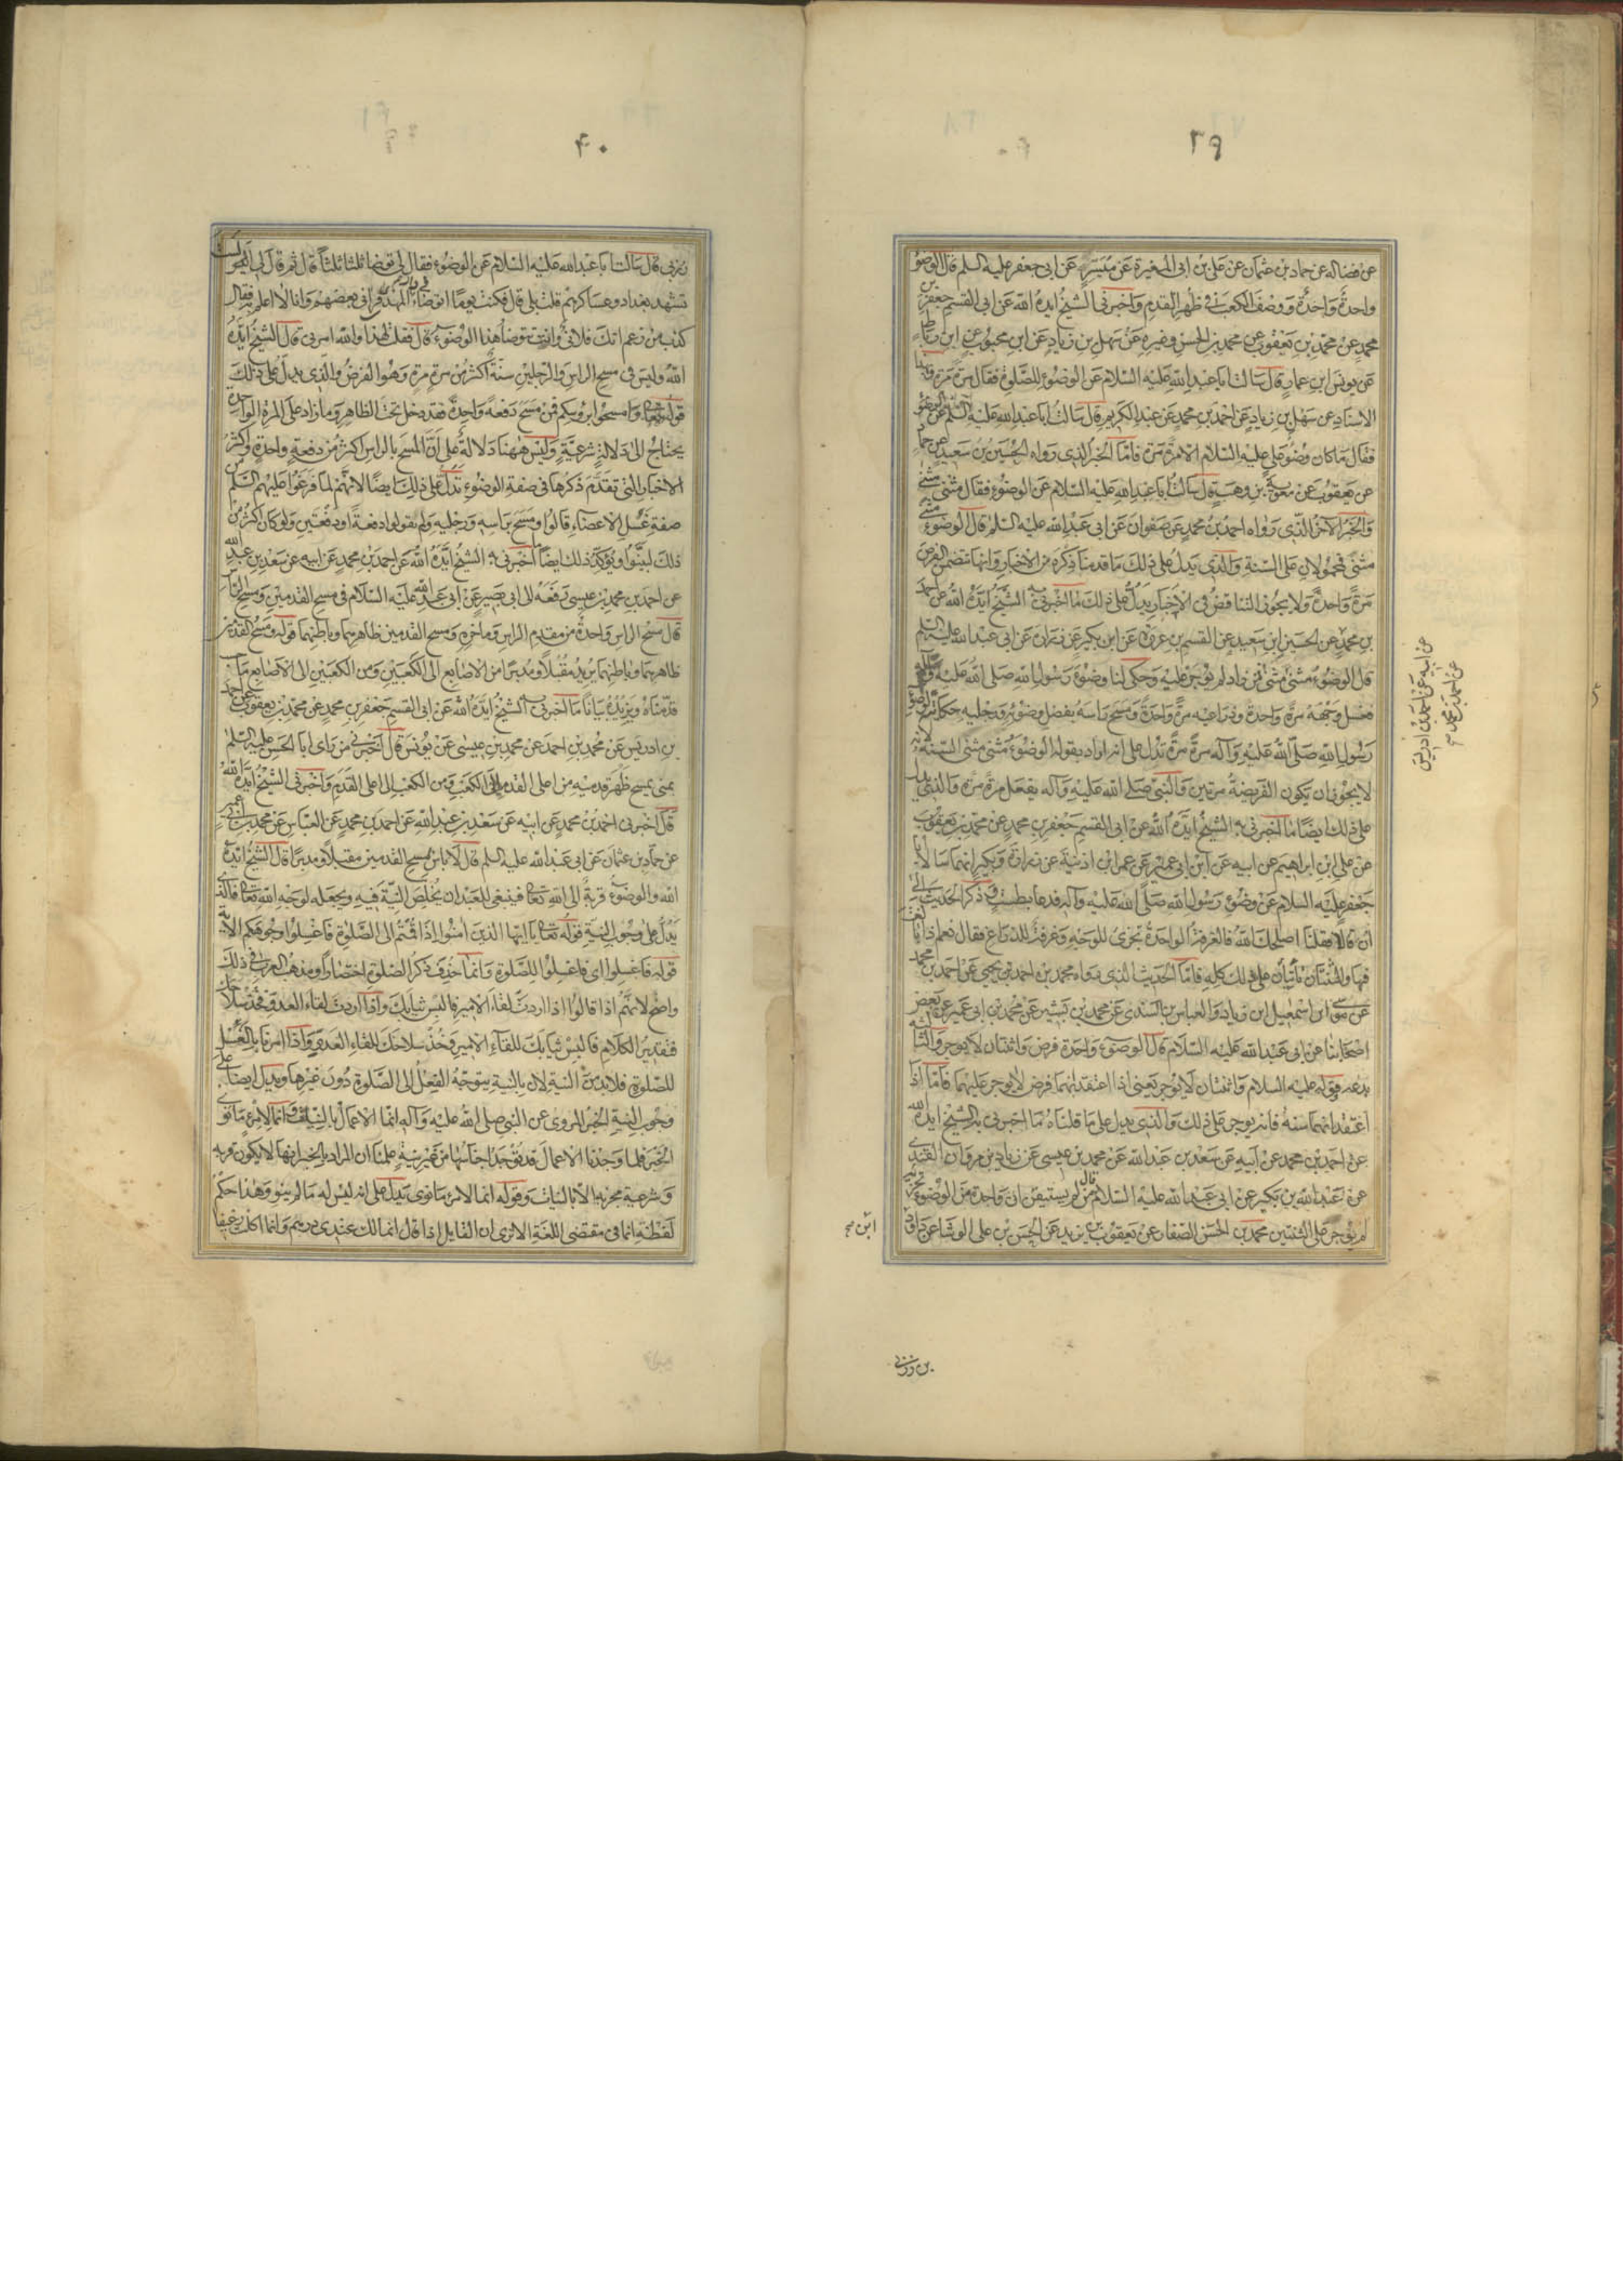 ٣٩
عن فضالة عن حماد بن عثمان عن علي بن ابي المغيرة عن ميسرة عن ابي جعفر عليه السلم قال الوضوء
واحدة واحدة ووصف الكعب في ظهر القدم واخبرني الشيخ ايده الله عن ابي القسم جعفر بن
محمد عن محمد بن يعقوب عن محمد بن الحسن وغيره عن سهل بن زياد عن ابن محبوب عن ابن رباط
عن يونس ابن عمار قال سالت ابا عبد الله عليه السلام عن الوضوء للصلوة فقال مرة مرة وبهذا
الاسناد عن سهل بن زياد عن احمد بن محمد عن عبد الكريم قال سالت ابا عبد الله عليه السلم عن الوضوء
فقال ما كان وضوء علي عليه السلام الا مرة مرة فاما الخبر الذي رواه الحسين بن سعيد عن حماد
عن يعقوب عن معوية بن وهب قال سالت ابا عبد الله عليه السلام عن الوضوء فقال مثنى مثنى
والخبر الاخر الذي رواه احمد بن محمد عن صفوان عن ابي عبد الله عليه السلم قال الوضوء مثنى
مثنى فمحمولان على السنة والذي يدل على ذلك ما قدمنا ذكره من الاخبار وانها متضمن الفرض
مرة واحدة ولا يجوز التناقض في الاخبار يدل على ذلك ما اخبرني به الشيخ ايده الله عن احمد
بن محمد عن الحسين ابن سعيد عن القسم بن عروة عن ابن بكير عن زرارة عن ابي عبد الله عليه السلم
قال الوضوء مثنى مثنى من زاد لم يوجر عليه وحكى لنا وضوء رسول الله صلى الله عليه وآله
فغسل وجهه مرة واحدة وذراعيه مرة واحدة ومسح راسه بفضل وضوئه ورجليه حكايته لوضوء
رسول الله صلى الله عليه وآله مرة مرة تدل على انه اراد بقوله الوضوء مثنى مثنى السنة لانه
لا يجوز ان يكون الفريضة مرتين والنبي صلى الله عليه وآله يفعل مرة مرة والذي يدل
على ذلك ايضا ما اخبرني به الشيخ ايده الله عن ابي القسم جعفر بن محمد عن محمد بن يعقوب
عن علي ابن ابراهيم عن ابيه عن ابن ابي عمير عن عمر ابن اذنية عن زرارة وبكير انهما سالا ابا
جعفر عليه السلام عن وضوء رسول الله صلى الله عليه وآله فدعا بطست وذكر الحديث الى
ان قالا فقلنا اصلحك الله فالغرفة الواحدة تجزي للوجه وغرفة للذراع فقال نعم اذا بالغت
فيها والثنتان تاتيان على ذلك كله فاما الحديث الذي رواه محمد بن احمد بن يحيى عن احمد بن محمد
عن موسى ابن اسمعيل ابن زياد والعباس بن السندي عن محمد بن بشير عن محمد بن ابي عمير عن بعض
اصحابنا عن ابي عبد الله عليه السلام قال الوضوء واحدة فرض واثنتان لا يوجر والثالثة
بدعه فقوله عليه السلام واثنتان لا يوجر يعني اذا اعتقد انهما فرض لا يوجر عليهما فاما اذا
اعتقد انهما سنة فانه يوجر على ذلك والذي يدل على ما قلناه ما اخبرني به الشيخ ايده الله
عن احمد بن محمد عن ابيه عن سعد بن عبد الله عن محمد بن عيسى عن زياد بن مروان القندي
عن عبد الله بن بكير عن ابي عبد الله عليه السلام قال من لم يستيقن ان واحدة من الوضوء تجزيه
لم يوجر على الثنتين محمد بن الحسن الصفار عن يعقوب بن يزيد عن الحسن بن علي الوشا عن داود
عن ابيه عن احمد بن ادريس
عن احمد بن محمد
بن زربي
٤٠
زربي قال سالت ابا عبد الله عليه السلام عن الوضوء فقال لي توضا ثلثا ثلثا قال ثم قال لي اليس
تشهد بغداد وعساكرهم قلت بلى قال فكنت يوما اتوضاء في دار المهدي فراني بعضهم وانا لا اعلم فقال
كذب من زعم انك فلاني وانت تتوضا هذا الوضوء قال فقلت لهذا والله امرني قال الشيخ ايده
الله وليس في مسح الراس والرجلين سنة اكثر من مرة مرة وهو الفرض والذي يدل على ذلك
قوله تعالى وامسحوا برؤسكم فمن مسح دفعة واحدة فقد دخل تحت الظاهر وما زاد على المرة الواحدة
يحتاج الى دلالة شرعية وليس ههنا دلالة على ان المسح بالراس اكثر من دفعة واحدة واكثر
الاخبار التي تقدم ذكرها في صفة الوضوء تدل على ذلك ايضا لانهم لما فرغوا عليهم السلم من
صفة غسل الاعضاء قالوا ومسح براسه ورجليه ولم يقولوا دفعة او دفعتين ولو كان اكثر من
ذلك لبينوا ويؤكد ذلك ايضا ما اخبرني به الشيخ ايده الله عن احمد بن محمد عن ابيه عن سعد بن عبد الله
عن احمد بن محمد بن عيسى رفعه الى ابي بصير عن ابي عبد الله عليه السلام في مسح القدمين ومسح الراس
قال مسح الراس واحدة من مقدم الراس وماخره ومسح القدمين ظاهرهما وباطنهما قوله ومسح القدمين
ظاهرهما وباطنهما يريد مقبلا ومدبرا من الاصابع الى الكعبين ومن الكعبين الى الاصابع ما
قدمناه ويزيده بيانا ما اخبرني به الشيخ ايده الله عن ابي القسم جعفر بن محمد عن محمد بن يعقوب عن احمد
بن ادريس عن محمد بن احمد عن محمد بن عيسى عن يونس قال اخبرني من راى ابا الحسن عليه السلم
بمنى يمسح ظهر قدميه من اعلى القدم الى الكعب ومن الكعب الى اعلى القدم واخبرني الشيخ ايده الله
قال اخبرني احمد بن محمد عن ابيه عن سعد بن عبد الله عن احمد بن محمد عن العباس عن محمد بن ابي عمير
عن حماد بن عثمان عن ابي عبد الله عليه السلم قال لا باس بمسح القدمين مقبلا ومدبرا قال الشيخ ايده
الله والوضوء قربة الى الله تعالى فينبغي للعبد ان يخلص النية فيه ويجعله لوجه الله تعالى فالذي
يدل على وجوب النية قوله تعالى يا ايها الذين امنوا اذا قمتم الى الصلوة فاغسلوا وجوهكم الاية
قوله فاغسلوا اي فاغسلوا للصلوة وانما حذف ذكر الصلوة اختصارا ومذهب العرب في ذلك
واضح لانهم اذا قالوا اذا اردت لقاء الامير فالبس ثيابك واذا اردت لقاء العدو فخذ سلاحك
فتقدير الكلام فالبس ثيابك للقاء الامير وخذ سلاحك للقاء العدو واذا امرنا بالغسل
للصلوة فلا بد من النية لان بالنية يتوجه الفعل الى الصلوة دون غيرها ويدل ايضا على
وجوب النية الخبر المروي عن النبي صلى الله عليه وآله انما الاعمال بالنيات وانما لامرئ ما نوى
الخبر فلما وجدنا الاعمال قد يوجد اجناسها من غير نية علمنا ان المراد بالخبر انها لا يكون قربه
وشرعية مجزية الا بالنيات وقوله انما لامرئ ما نوى يدل على انه ليس له ما لم ينو وهذا حكم
لفظة انما في مقتضى اللغة الا ترى ان القايل اذا قال انما لك عندي درهم وانما اكلت رغيفا